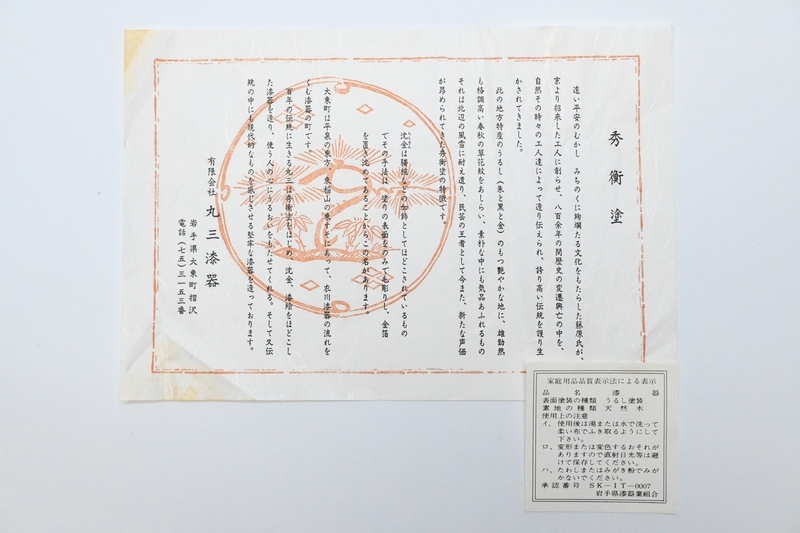 秀衡塗
遠い平安のむかし みちのくに絢爛たる文化をもたらした藤原氏が、
京より招来した工人に創らせ、八百余年の間歴史の変遷興亡の中を、
自然その時々の工人達によって造り伝えられ、誇り高い伝統を護り生
かされてきました。
此の地方特産のうるし(朱と黒と金)のもつ艶やかな地に、雄勁然
も格調高い春秋の草花紋をあしらい、素朴な中にも気品あふれるもの
それは北辺の風雪に耐え還り、民芸の王者として今また、新たな声価
が昂められてきた秀衡塗の特徴です。
沈金は膳椀などの加飾としてほどこされているもの
でその手法は、塗りの表面をのみで毛彫りし、金箔
を置き沈めてあることからこの名があります。
大東町は平泉の東方、東稲山の東すそにあって、衣川漆器の流れを
くむ漆器の町です。
百年の伝統に生きる丸三は秀衡塗をはじめ、沈金、漆絵をほどこし
た漆器を造り、使う人の心にうるおいをもたせてくれる。そして又伝
統の中にも現代的なものを感じさせる堅牢な漆器を造っております。
有限会社 丸三漆器
岩手県大東町摺沢
電話(七五)三一五三番
家庭用品品質表示法による表示
品名 漆器
表面塗装の種類 うるし塗装
素地の種類 天然木
使用上の注意
イ、使用後は湯または水で洗って
柔い布でふき取るようにして
下さい。
ロ、変形または変色するおそれが
ありますので直射日光等は避
けて保存してください。
ハ、たわしまたはみがき粉でみが
かないでください。
承認番号 SK-IT-0007
岩手県漆器業組合